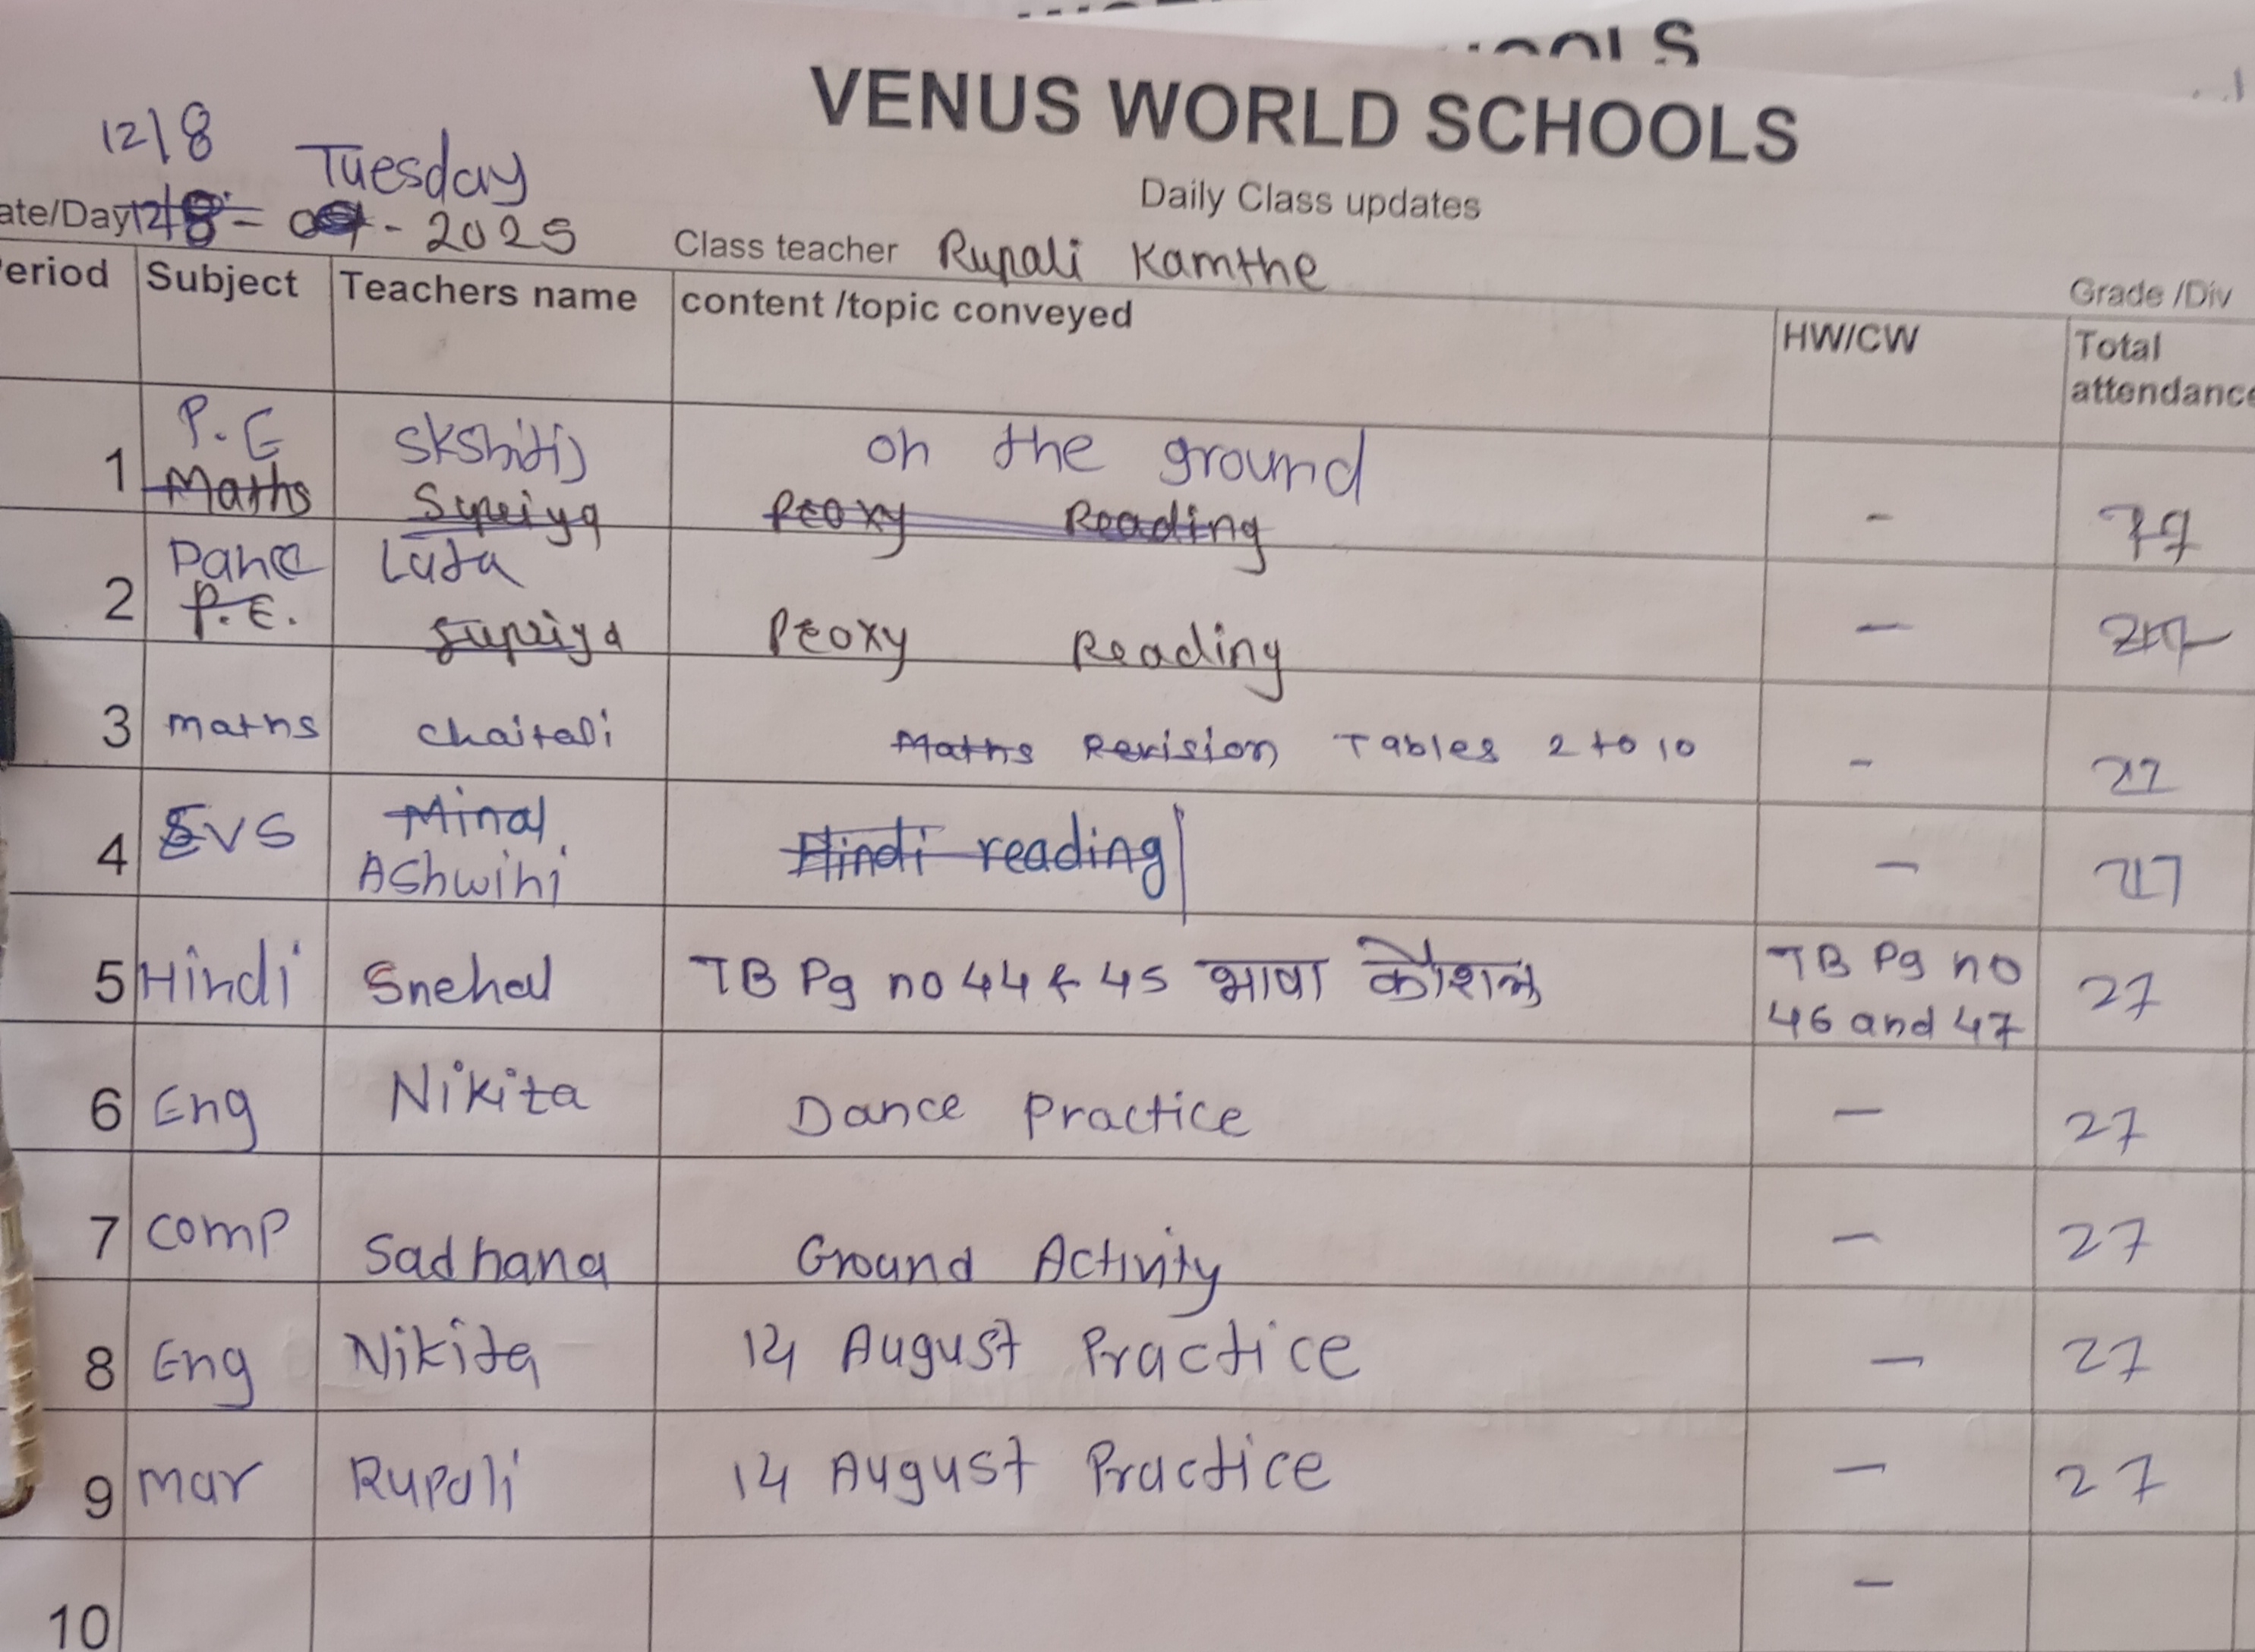 VENUS WORLD SCHOOLS
Daily Class updates
12/8 Tuesday
ate/Day 12/8 - - 2025 Class teacher Rupali Kamthe Grade /Div
eriod Subject Teachers name content /topic conveyed HW/CW Total attendance
P.E on the ground
1 Maths Supriya Proxy Reading -
Lata
2 P.E. Supriya Proxy Reading -
3 maths chaitali Maths Revision Tables 2 to 10 -
4 EVS Minal Hindi reading -
Ashwini
5 Hindi Snehal TB Pg no 44 & 45 भाषा कौशल TB Pg no 27
46 and 47
6 Eng Nikita Dance Practice - 27
7 comp Sadhana Ground Activity - 27
8 Eng Nikita 14 August Practice - 27
9 mar Rupali 14 August Practice - 27
10 -